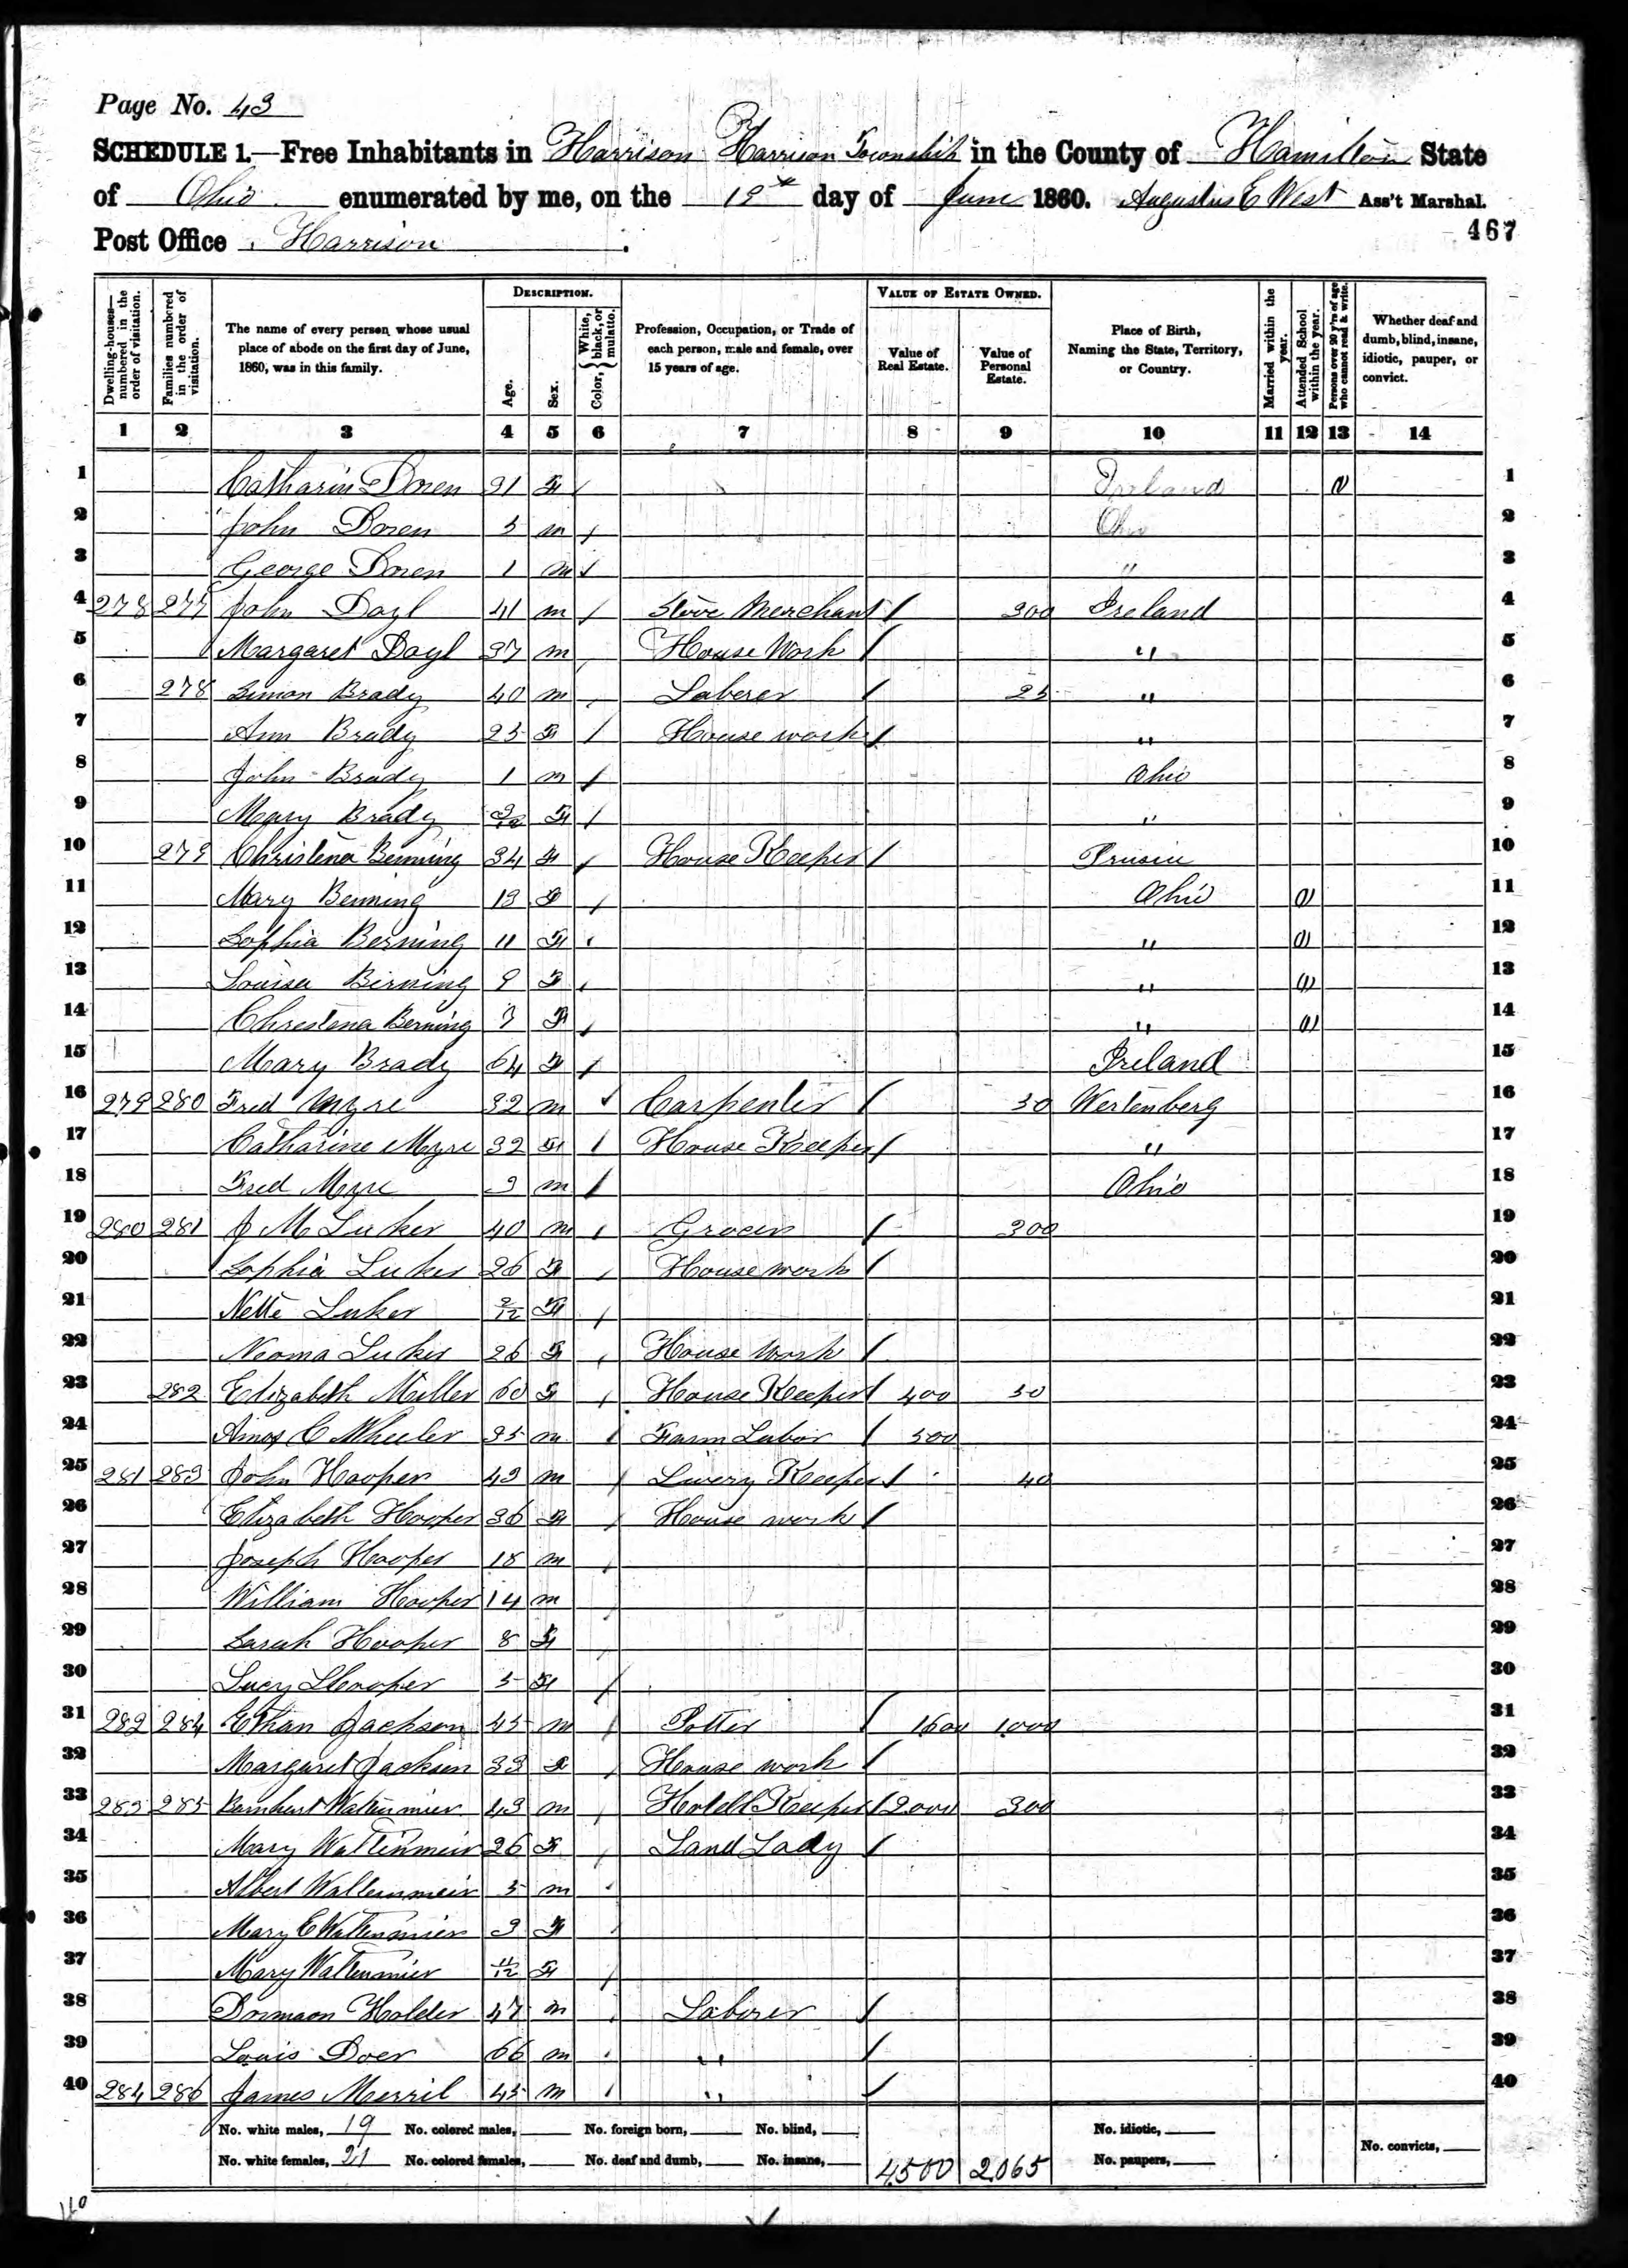 Page No. 43
SCHEDULE 1.—Free Inhabitants in Harrison Harrison Township in the County of Hamilton State
of Ohio enumerated by me, on the 19th day of June 1860. Augustus E West Ass't Marshal.
Post Office Harrison
467
Dwelling-houses—numbered in the order of visitation. Families numbered in the order of visitation. The name of every person whose usual place of abode on the first day of June, 1860, was in this family. DESCRIPTION. Age. Sex. Color, { White, black, or mulatto. Profession, Occupation, or Trade of each person, male and female, over 15 years of age. VALUE OF ESTATE OWNED. Value of Real Estate. Value of Personal Estate. Place of Birth, Naming the State, Territory, or Country. Married within the year. Attended School within the year. Persons over 20 y'rs of age who cannot read & write. Whether deaf and dumb, blind, insane, idiotic, pauper, or convict.
1 2 3 4 5 6 7 8 9 10 11 12 13 14
1 Catharin Doren 31 F / Ireland / 1
2 John Doren 5 m / Ohio 2
3 George Doren 1 m / " 3
4 278 277 John Dayl 41 m / Stove Merchant / 300 Ireland 4
5 Margaret Dayl 37 m / House Work / " 5
6 278 Simon Brady 40 m / Laberer / 25 " 6
7 Ann Brady 25 F / House work / " 7
8 John Brady 1 m / Ohio 8
9 Mary Brady F / " 9
10 279 Christena Benning 34 F / House Keeper / Prusia 10
11 Mary Benning 13 F / Ohio / 11
12 Sophia Berning 11 F / " / 12
13 Louisa Birning 9 F / " / 13
14 Chrestena Berning 7 F / " / 14
15 Mary Brady 64 F / Ireland 15
16 279 280 Fred Myre 32 m / Carpenter / 30 Wertenberg 16
17 Catharine Myre 32 F / House Keeper / " 17
18 Fred Myre 3 m / Ohio 18
19 280 281 J M Luker 40 m / Grocer / 300 19
20 Sophia Luker 26 F / House work / 20
21 Nette Luker F / 21
22 Neoma Luker 26 F / House Work / 22
23 282 Elizabeth Miller 60 F / House Keeper / 400 50 23
24 Amos C Wheeler 35 m / Farm Labor / 500 24
25 281 283 John Hooper 43 m / Livery Keeper / 40 25
26 Elizabeth Hooper 36 F / House work / 26
27 Joseph Hooper 18 m / 27
28 William Hooper 14 m 28
29 Sarah Hooper 8 F / 29
30 Lucy Hooper 5 F / 30
31 282 284 Ethan Jackson 45 m / Potter / 1600 1000 31
32 Margaret Jackson 33 F / House work / 32
33 283 285 Barnhart Waltenmier 43 m / Hotell Keeper / 2000 300 33
34 Mary Waltenmeir 26 F / Land Lady / 34
35 Albert Waltenmeir 5 m / 35
36 Mary E Waltenmier 3 F / 36
37 Mary Waltenmier 11/12 F / 37
38 Holder 47 m / Laberer / 38
39 Louis Doer 66 m / " / 39
40 284 286 James Merril 45 m / " / 40
No. white males, 19 No. colored males, No. foreign born, No. blind, No. idiotic,
No. white females, 21 No. colored females, No. deaf and dumb, No. insane, 4500 2065 No. paupers, No. convicts,